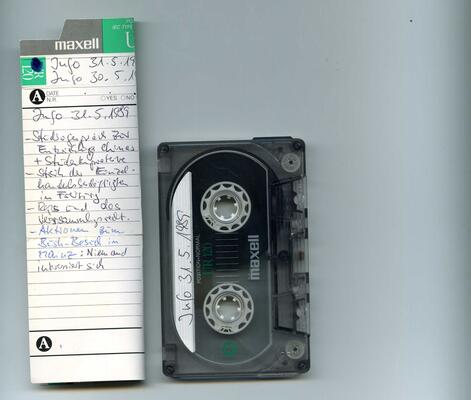 maxell
UR
120
Info 31.5.19
Info 30.5.1
A DATE
N.R. YES NO
Info 31.5.1989
- Studiogespräch zur
Entwicklung Chinas
+ Studentenproteste
- Streik der Einzel-
handelsbeschäftigten
in Freiburg
- Reps und das
Versammlungsrecht.
- Aktionen zum
Bush-Besuch in
Mainz: Niemand
interessiert sich
A
Info 31.5.1989
POSITION•NORMAL
UR 120
maxell